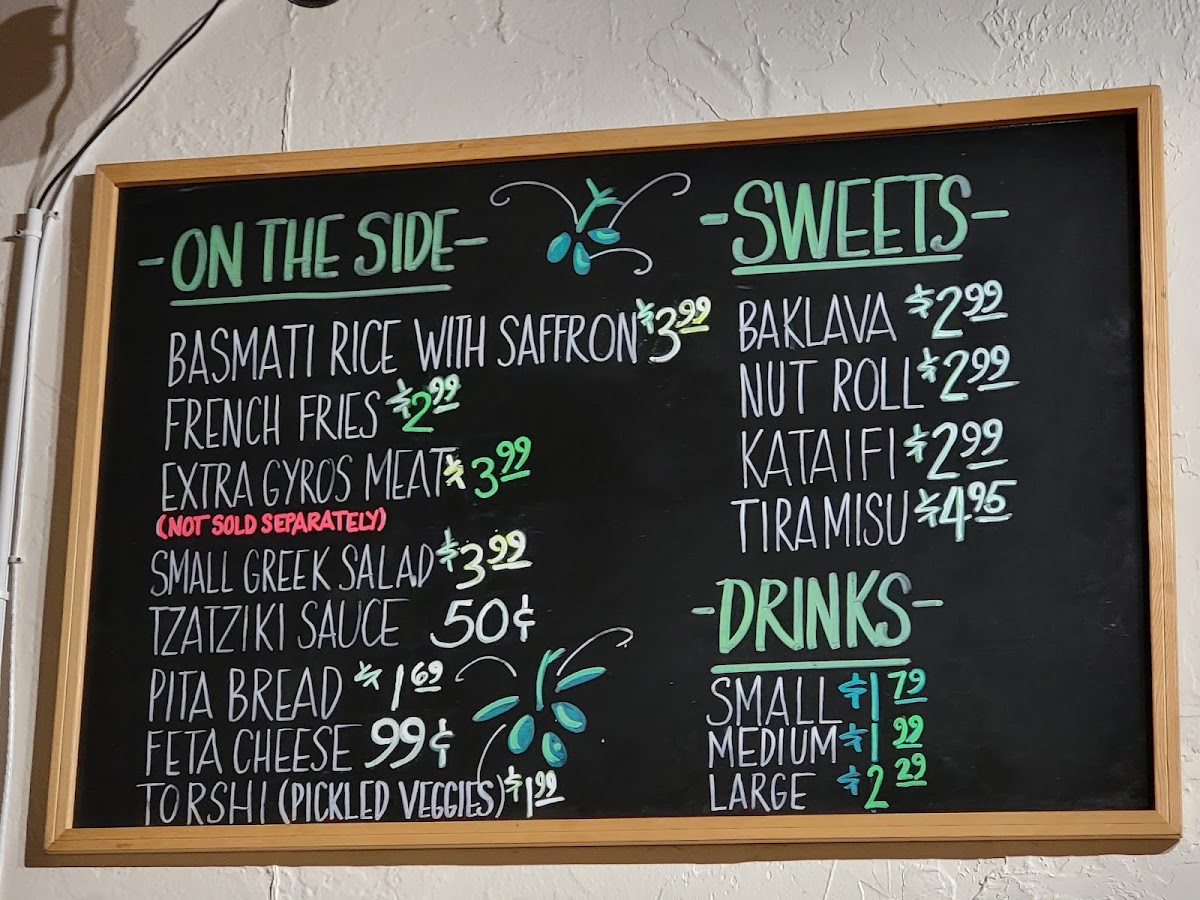 -ON THE SIDE-
BASMATI RICE WITH SAFFRON $3.99
FRENCH FRIES $2.99
EXTRA GYROS MEAT $3.99
(NOT SOLD SEPARATELY)
SMALL GREEK SALAD $3.99
TZATZIKI SAUCE 50¢
PITA BREAD $1.69
FETA CHEESE 99¢
TORSHI (PICKLED VEGGIES) $1.99
-SWEETS-
BAKLAVA $2.99
NUT ROLL $2.99
KATAIFI $2.99
TIRAMISU $4.95
-DRINKS-
SMALL $1.79
MEDIUM $1.99
LARGE $2.29